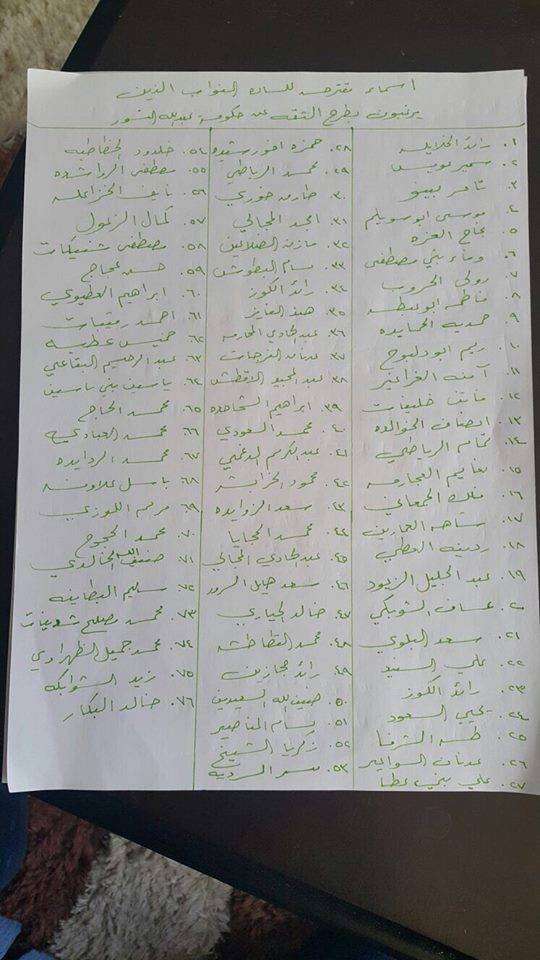 اسماء مقترحه للساده النواب الذين
يرغبون بطرح الثقه عن حكومة عبدالله النسور
١. رائد الخلايله
٢. سمير عويس
٣. تامر بينو
٤. موسى ابو سويلم
٥. نجاح العزه
٦. وفاء بني مصطفى
٧. رولى الحروب
٨. فاطمه ابو عبطه
٩. حمديه الحمايده
١٠. ريم ابو دلبوح
١١. آمنه الغراغير
١٢. عاطف خليفات
١٣. انصاف الخوالده
١٤. تمام الرياطي
١٥. هايم العجارمه
١٦. فلك الجمعاني
١٧. شاهه العمارين
١٨. ردينه العطي
١٩. عبد الجليل الزيود
٢٠. عساف الشوبكي
٢١. سعد البلوي
٢٢. علي السنيد
٢٣. رائد الكوز
٢٤. يحيى السعود
٢٥. طه الشرفا
٢٦. عدنان السواعير
٢٧. علي بني عطا
٢٨. حمزه اخو رشيده
٢٩. محمد الرياطي
٣٠. طارق خوري
٣١. امجد المجالي
٣٢. مازن الضلاعين
٣٣. بسام البطوش
٣٤. رائد الكوز
٣٥. هيف الفايز
٣٦. عبدالهادي المحارمه
٣٧. عدنان الفرجات
٣٨. عبد المجيد الاقطش
٣٩. ابراهيم الشحاحده
٤٠. محمد السعودي
٤١. عبد الكريم الدغمي
٤٢. محمود الخرابشه
٤٣. سعد الزوايده
٤٤. محمد الحجايا
٤٥. عبدالهادي المجالي
٤٦. سعد هايل السرور
٤٧. خالد الحياري
٤٨. محمد القطاطشه
٤٩. رائد حجازين
٥٠. ضيف الله السعيديين
٥١. بسام المناصير
٥٢. زكريا الشيخ
٥٣. ميسر السرديه
٥٤. خلدود الخطاطبه
٥٥. مصطفى الرواشده
٥٦. نايف الخزاعله
٥٧. كمال الزغول
٥٨. مصطفى شنيكات
٥٩. حسن عجاج
٦٠. ابراهيم العطيوي
٦١. احمد رقيبات
٦٢. خميس عطيه
٦٣. عبد الرحيم البقاعي
٦٤. ياسين بني ياسين
٦٥. محمد الحاج
٦٦. محمد العبادي
٦٧. محمد الردايده
٦٨. باسل علاونه
٦٩. مريم اللوزي
٧٠. محمد الحجوج
٧١. ضيف الله الخالدي
٧٢. سليم البطاينه
٧٣. محمد مصلح شديفات
٧٤. محمد جميل الظهراوي
٧٥. زيد الشوابكه
٧٦. خالد البكار